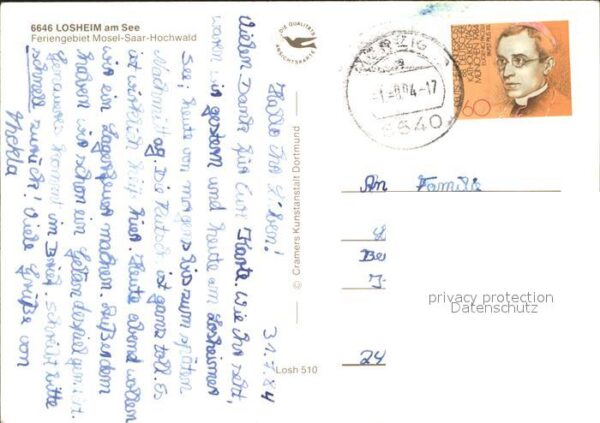 6646 LOSHEIM am See
Feriengebiet Mosel-Saar-Hochwald
DIE QUALITÄTS
ANSICHTSKARTE
© Cramers Kunstanstalt Dortmund
Losh 510
31.7.84
Hallo Ihr Lieben!
Vielen Dank für Eure Karte. Wie Ihr seht,
waren wir gestern und heute am Losheimer
See; heute von morgens bis zum späten
Nachmittag. Die Rutsch ist ganz toll. Es
ist wirklich hier. Heute abend wollen
wir ein Lagerfeuer machen. Außerdem
haben wir schon ein Geländespiel gemacht.
Genaueres kommt im Brief. Schreibt bitte
schnell zurück! Viele Grüße von
Thekla
MERZIG
-1.-8.84-17
6640
60
An Familie
Be
J
24
privacy protection
Datenschutz